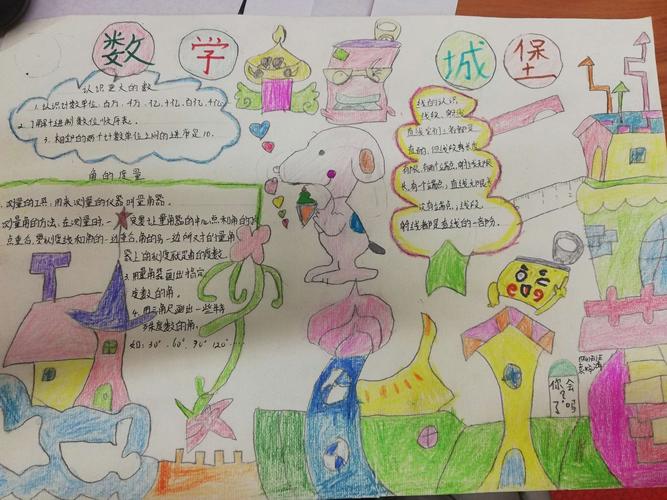 数学城堡
认识更大的数
1.认识计数单位,百万、千万、亿、十亿、百亿、千亿
2.了解十进制数位顺序表。
3.相邻的两个计数单位之间的进率是10.
角的度量
测量的工具,用来测量的仪器叫量角器。
测量角的方法,在测量时,一定要让量角器的中心点和角的顶
点重合,零刻度线和角的一边重合,角的另一边所对的量角
器上的刻度就是角的度数
3.用量角器画出指定
度数的角。
4.用三角尺画出一些特
殊度数的角。
如:30°、60°、90°120°……
线的认识
线段、射线
直线它们
直的,但线段有长度
有限,有两个端点,射线无限
长,有个端点,直线无限
没有端点,线段、
射线都是直线的一部分。
你会
了吗